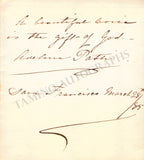 A beautiful voice
is the gift of God -
Adelina Patti
San Francisco March 29
/85
TAMINO AUTOGRAPHS